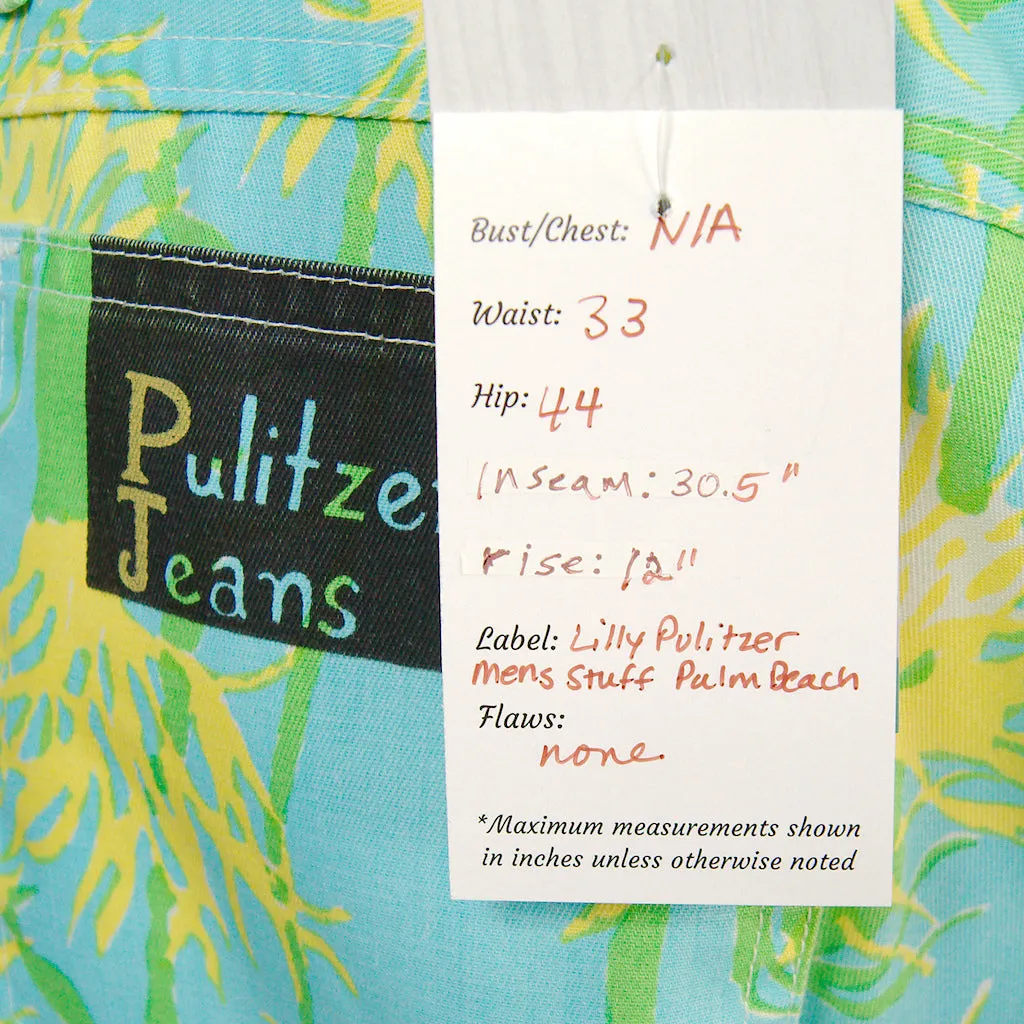 Pulitze
Jeans
Bust/Chest: N/A
Waist: 33
Hip: 44
Inseam: 30.5"
rise: 12"
Label: Lilly Pulitzer
Mens Stuff Palm Beach
Flaws:
none.
*Maximum measurements shown
in inches unless otherwise noted